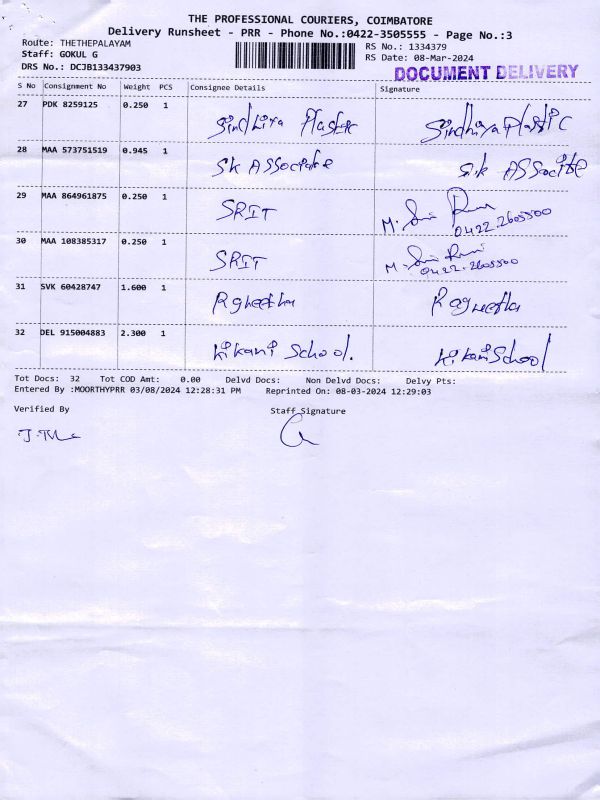 THE PROFESSIONAL COURIERS, COIMBATORE
Delivery Runsheet - PRR - Phone No.:0422-3505555 - Page No.:3
Route: THETHEPALAYAM
Staff: GOKUL G
DRS No.: DCJB133437903
RS No.: 1334379
RS Date: 08-Mar-2024
DOCUMENT DELIVERY
S No Consignment No Weight PCS Consignee Details Signature
27 PDK 8259125 0.250 1 Sindhiya Plastic Sindhiya Plastic
28 MAA 573751519 0.945 1 SK Associate S.K Associte
29 MAA 864961875 0.250 1 SRIT M.
0422.2605500
30 MAA 108385317 0.250 1 SRIT M.
0422.2605500
31 SVK 60428747 1.600 1
32 DEL 915004883 2.300 1 Kikani School. Kikani School
Tot Docs: 32 Tot COD Amt: 0.00 Delvd Docs: Non Delvd Docs: Delvy Pts:
Entered By :MOORTHYPRR 03/08/2024 12:28:31 PM Reprinted On: 08-03-2024 12:29:03
Verified By Staff Signature